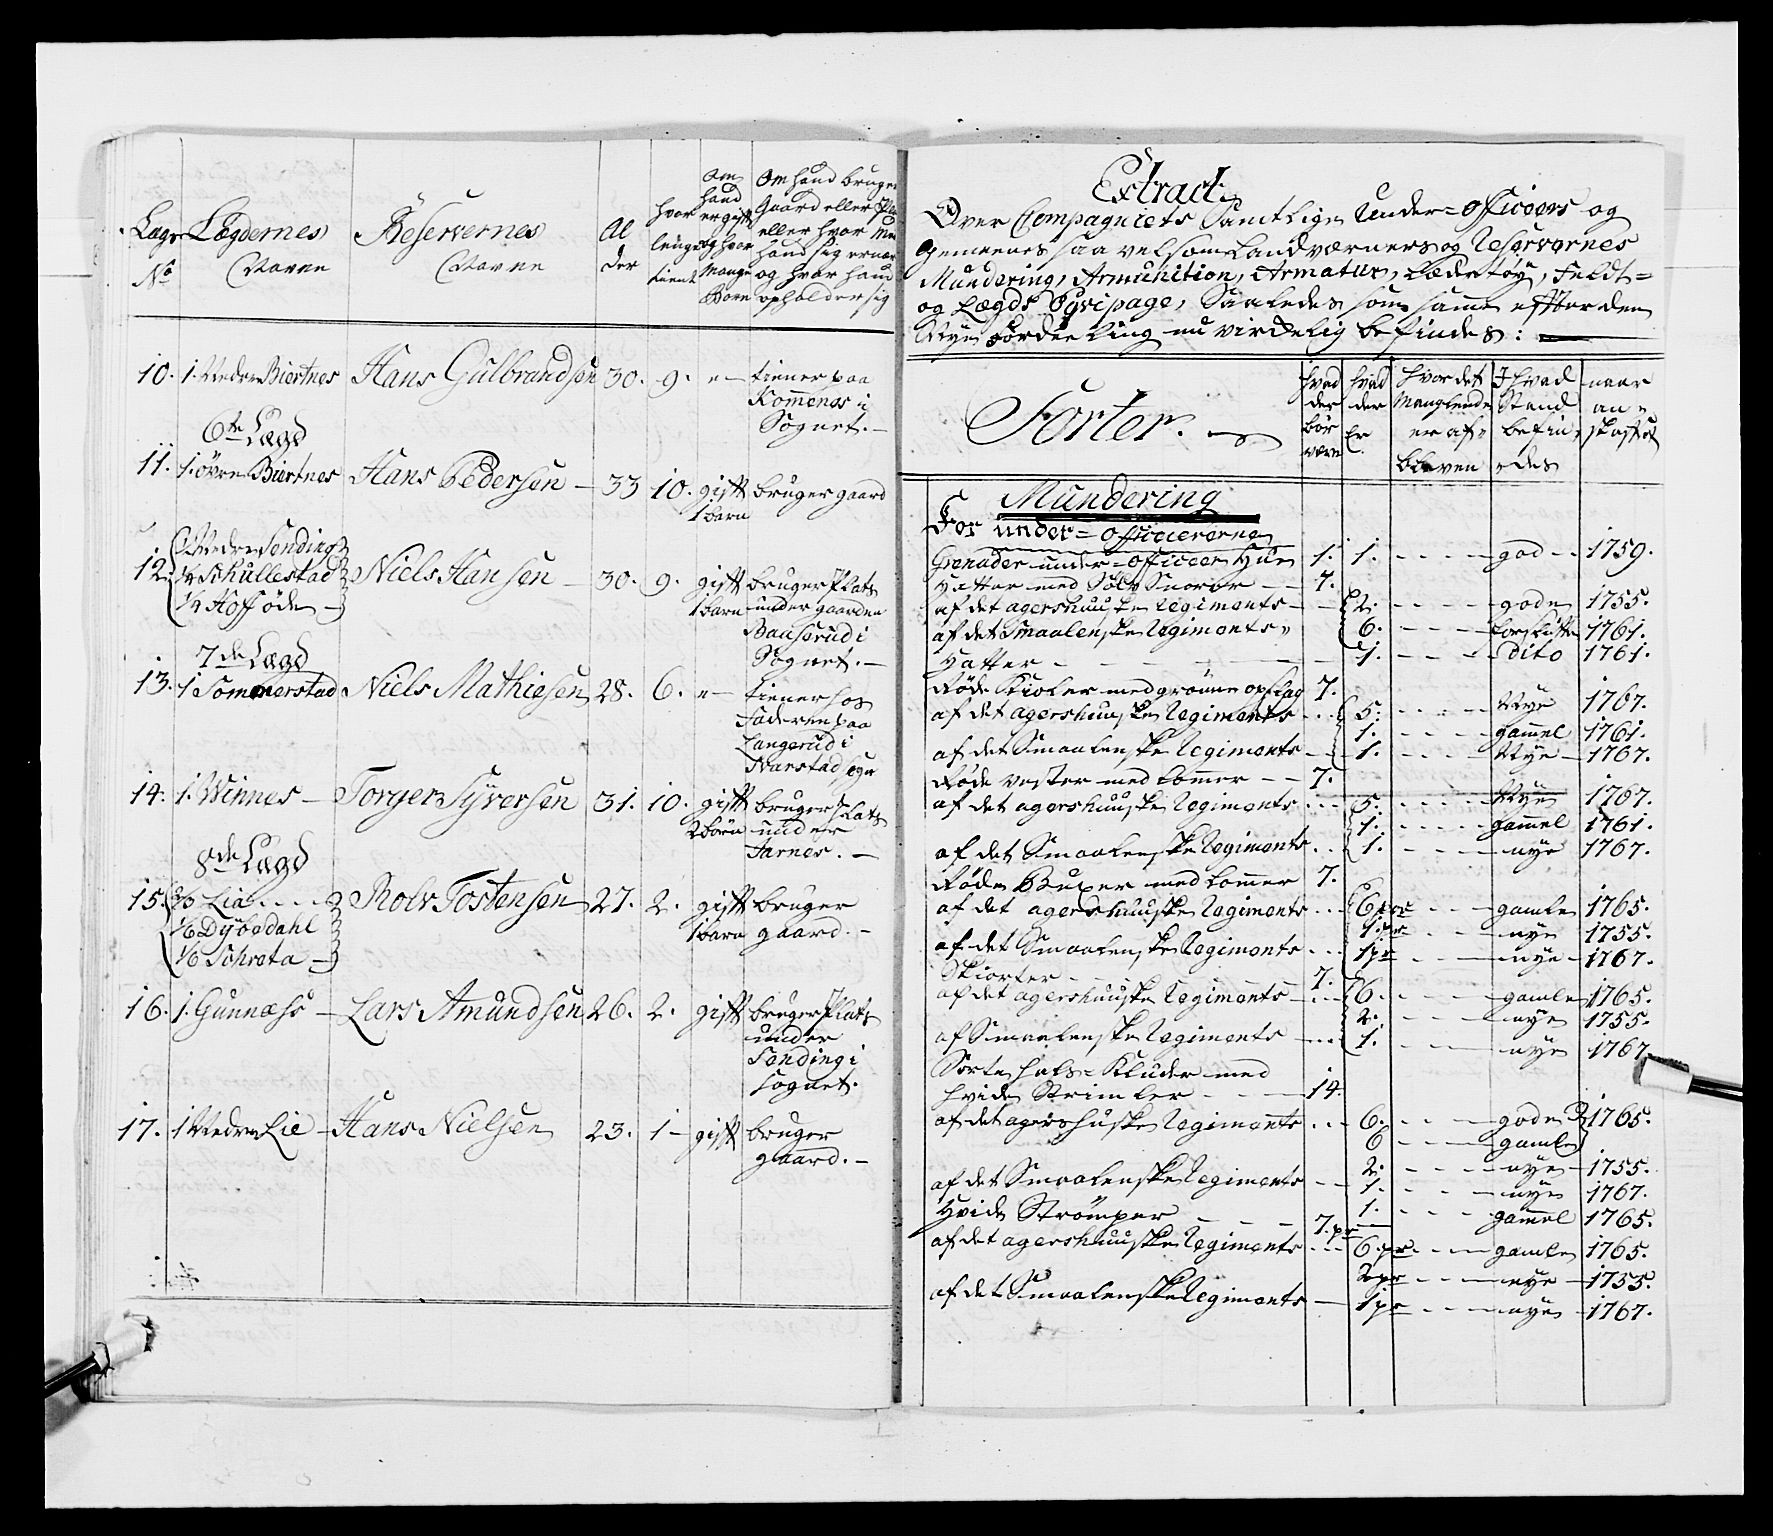 Lægs No
Lægdernes Navne
Reservernes Navne
Al der
hvor lenge tient
om hand er gift og hvor Mange Born
Om hand bruger Gaard eller Pla
eller hvor
hand sig ernær
og hvor hand
opholder sig
10. 1. Nedre Biertnes Hans Gulbrandsen 30. 9. "— tiener paa
Komenæs i
Sognet. —
6te Lægd
11. 1. øvre Biertnes Hans Pedersen — 33 10. gift bruger gaard
1 barn
Nedre Sonding
12. ¼ Schullestad Niels Hansen — 30. 9. gift bruger Plats
¼ Hoff øde — 1 barn under gaarden
Baaserud i
Sognet. —
7de Lægd
13. 1 Sommerstad Niels Mathiesen 28. 6. "— tiener hos
Faderen paa
Langerud i
Svarstad Sogn
14. 1. Winnes — Torger Syversen 31. 10. gift bruger Plats
2 børn under
Jarnes. —
8de Lægd
15. ⅔ Lia Rolv Tostensen 27. 2. gift bruger
1/6 Dybedahl 1 barn gaard. —
1/6 Schrota —
16. 1. Gunnæss — Lars Amundsen 26. 2. gift bruger Plats
under
Sonding i
Sognet.
17. 1 Nedre Lie — Hans Nielsen 23. 1 — gift bruger
gaard. —
Extract
Over Compagniets Samtlige Under-Officeers og
Gemeenes saa vel som Landværners og Reservernes
Mundering, Ammunition, Armatur, Lædertøy, Feldt-
og Lægds Eqvipage, Saaledes som samme efter den
Nye Fordeeling nu virkelig befindes: —
Sorter.
hvad der bør være
hvad der Er.
hvor det Manglende er af bleven
I hvad Stand befindes
naar anskaffet
Mundering
For under-officererne
Grenader under-officeer Hue 1. 1. - - - - god - - 1759.
Hatter med Sølv Snorer - - 7.
af det agershuuske Regiments - - 2. - - - - gode 1755.
af det Smaalenske Regiments " 6. - - - - forslitte 1761.
Hatter - - - - - - 1. - - - - dito 1761.
Røde Kioler med grønne opslag 7.
af det agershuuske Regiments - - - 5. - - - - Nye 1767.
1. - - - - gammel 1761.
af det Smaalenske Regiments - - 1. - - - - Nye - 1767.
Røde vester med Lommer - - 7.
af det agershuuske Regiments - - - 5. - - - - Nye 1767.
1. - - - - gammel 1761.
af det Smaalenske Regiments - - 1. - - - - nye 1767.
Røde Buxer med Lommer 7.
af det agershuuske Regiments - - - 6 par - - - gamle 1765.
1 pr - - - nye 1755.
af det Smaalenske Regiments - - - 1 pr - - - nye - 1767.
Skiorter - - - - 7.
af det agershuuske Regiments - - - 6. - - - - gamle 1765.
2. - - - - nye 1755.
af Smaalenske Regiments - - - 1. - - - - nye 1767.
Sorte hals-Kluder med
hvide Strimler - - - 14.
af det agershuske Regiments - - - 6. - - - - gode 1765.
6 - - - - gamle
2. - - - - nye - 1755.
af det Smaalenske Regiments - - 1. - - - - nye 1767.
Hvide Strømper - - - 7. pr 1. - - - - gammel 1765.
af det agershuuske Regiments - - - 6 pr - - - gamle 1765.
2 pr - - - nye - 1755.
af det Smaalenske Regiments — 1 pr - - - nye - 1767.